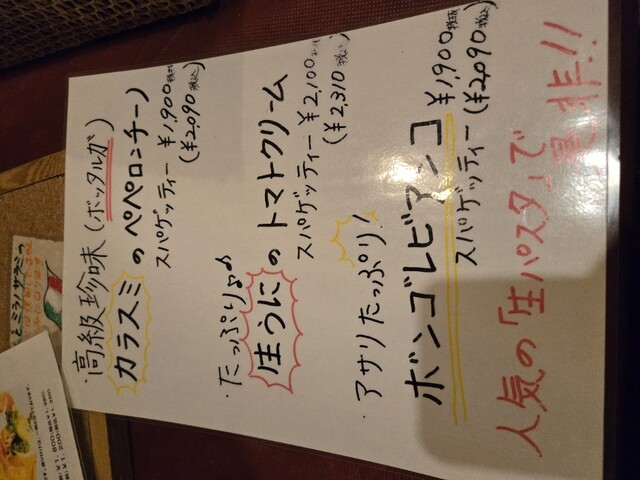 ・高級珍味（ボッタルガ）
カラスミのペペロンチーノ
スパゲッティー ¥1,900税抜
(¥2,090税込)
・たっぷり♪♪
生うにのトマトクリーム
スパゲッティー ¥2,100税抜
(¥2,310税込)
・アサリたっぷり！
ボンゴレビアンコ
スパゲッティー ¥1,900税抜
(¥2,090税込)
人気の「生パスタ」で
是非!!